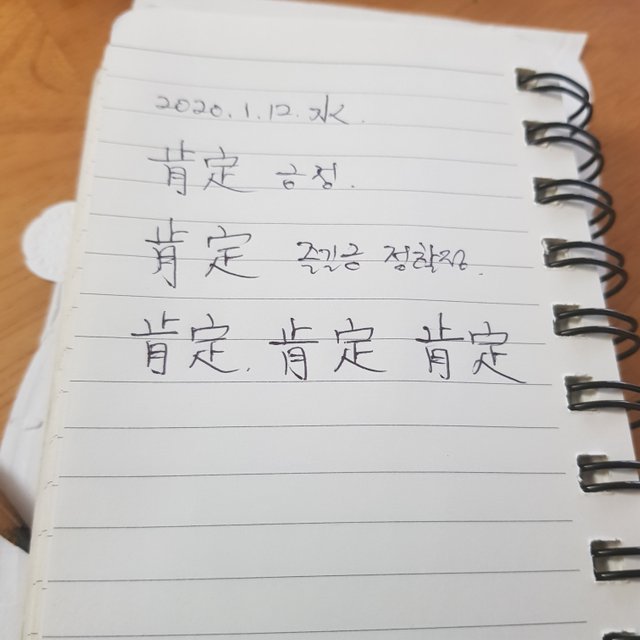 2020.1.12. 水.
肯定 긍정.
肯定 즐길긍 정할정.
肯定. 肯定 肯定